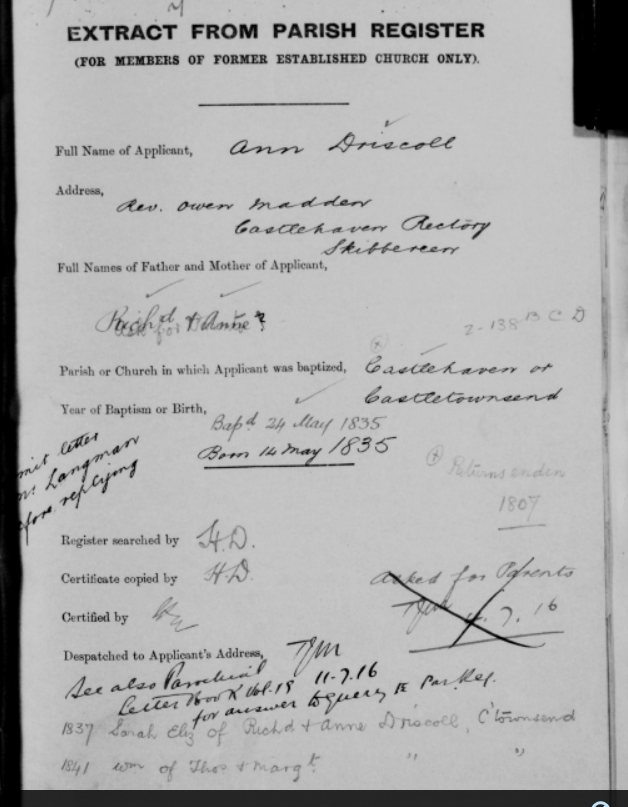 EXTRACT FROM PARISH REGISTER
(FOR MEMBERS OF FORMER ESTABLISHED CHURCH ONLY).
Full Name of Applicant, Ann Driscoll
Address,
Rev. Owen Madden
Castlehaven Rectory
Skibbereen
Full Names of Father and Mother of Applicant,
Rich'd + Anne ?
2-138 B C D
Parish or Church in which Applicant was baptized, Castlehaven or
Castletownsend
Year of Baptism or Birth,
Bap'd 24 May 1835
Born 14 May 1835
letter
Langman
replying
Returns
1807
Register searched by H.D.
Certificate copied by H.D.
asked for Parents
7. 16
Certified by
Despatched to Applicant's Address,
See also Parochial 11-7.16
Letter Book Vol. 15
for answer to query re
1837 Sarah Eliz of Rich'd + Anne Driscoll, C'townsend
1841 Wm of Thos + Margt. " "